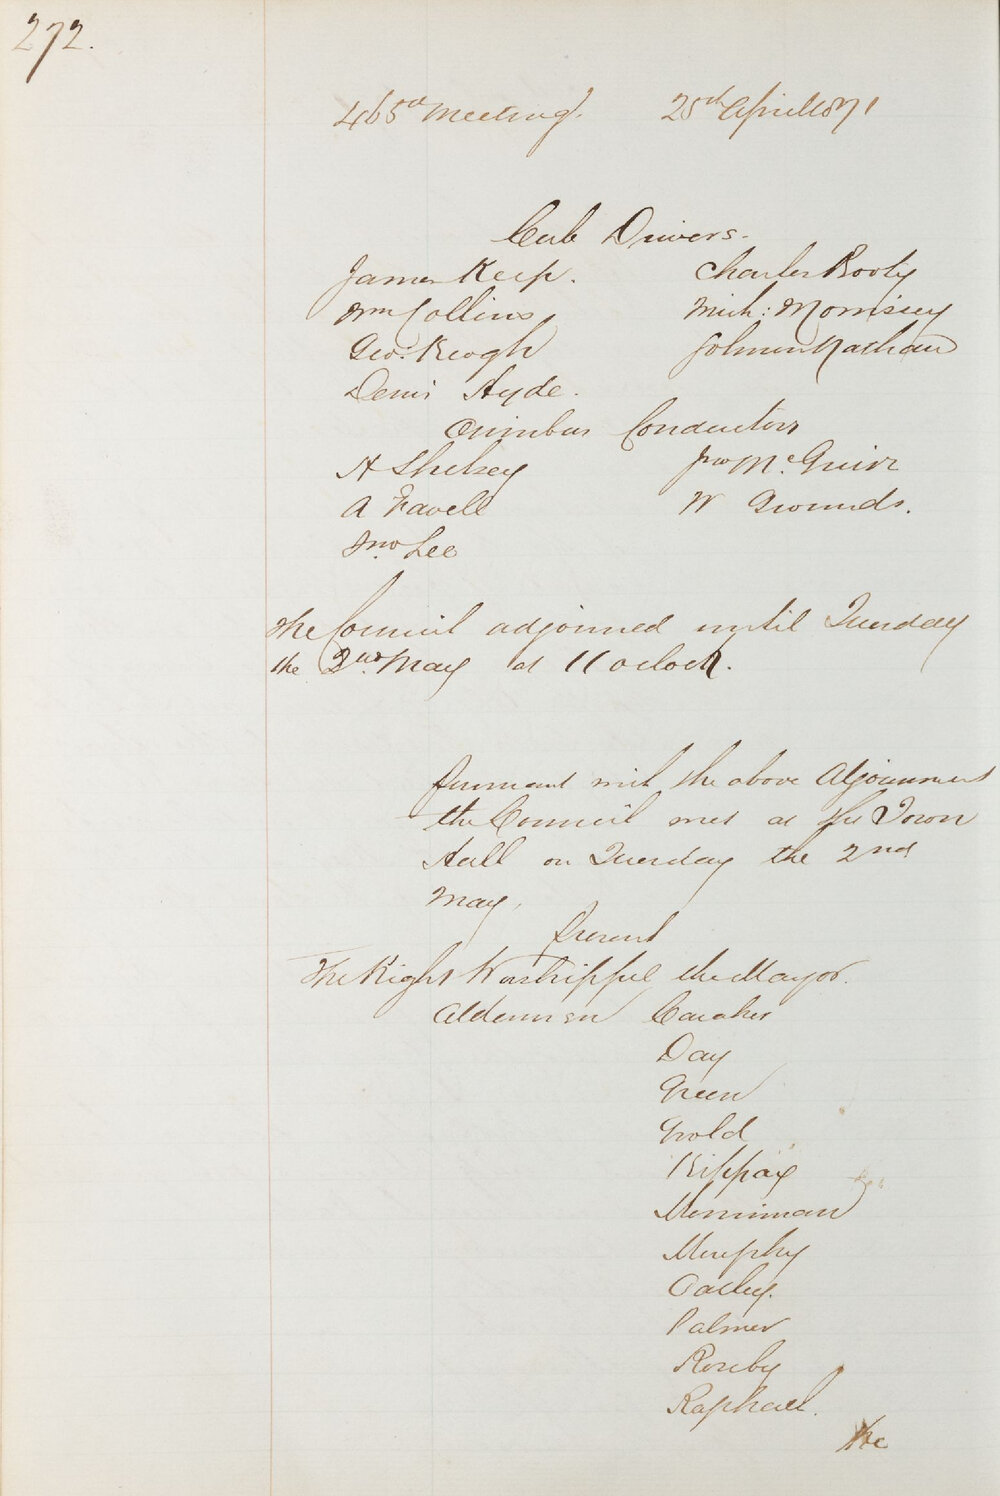 272.
465th Meeting. 25th April 1871
Cab Drivers.
James Keep. Charles Booty
Wm Collins Mich: Morrisey
Geo: Keogh Solomon Nathan
Denis Hyde.
Omnibus Conductors
A Shelsey Jno McGuire
A Favell W Grounds.
Jno Lee
The Council adjourned until Tuesday
the 2nd May at 11 oclock.
Pursuant with the above Adjournment
the Council met at the Town
Hall on Tuesday the 2nd
May.
Present
The Right Worshipful the Mayor.
Aldermen Caraher
Day
Green
Gould
Kippax
Merriman
Murphy
Oatley.
Palmer
Roseby
Raphael.
The